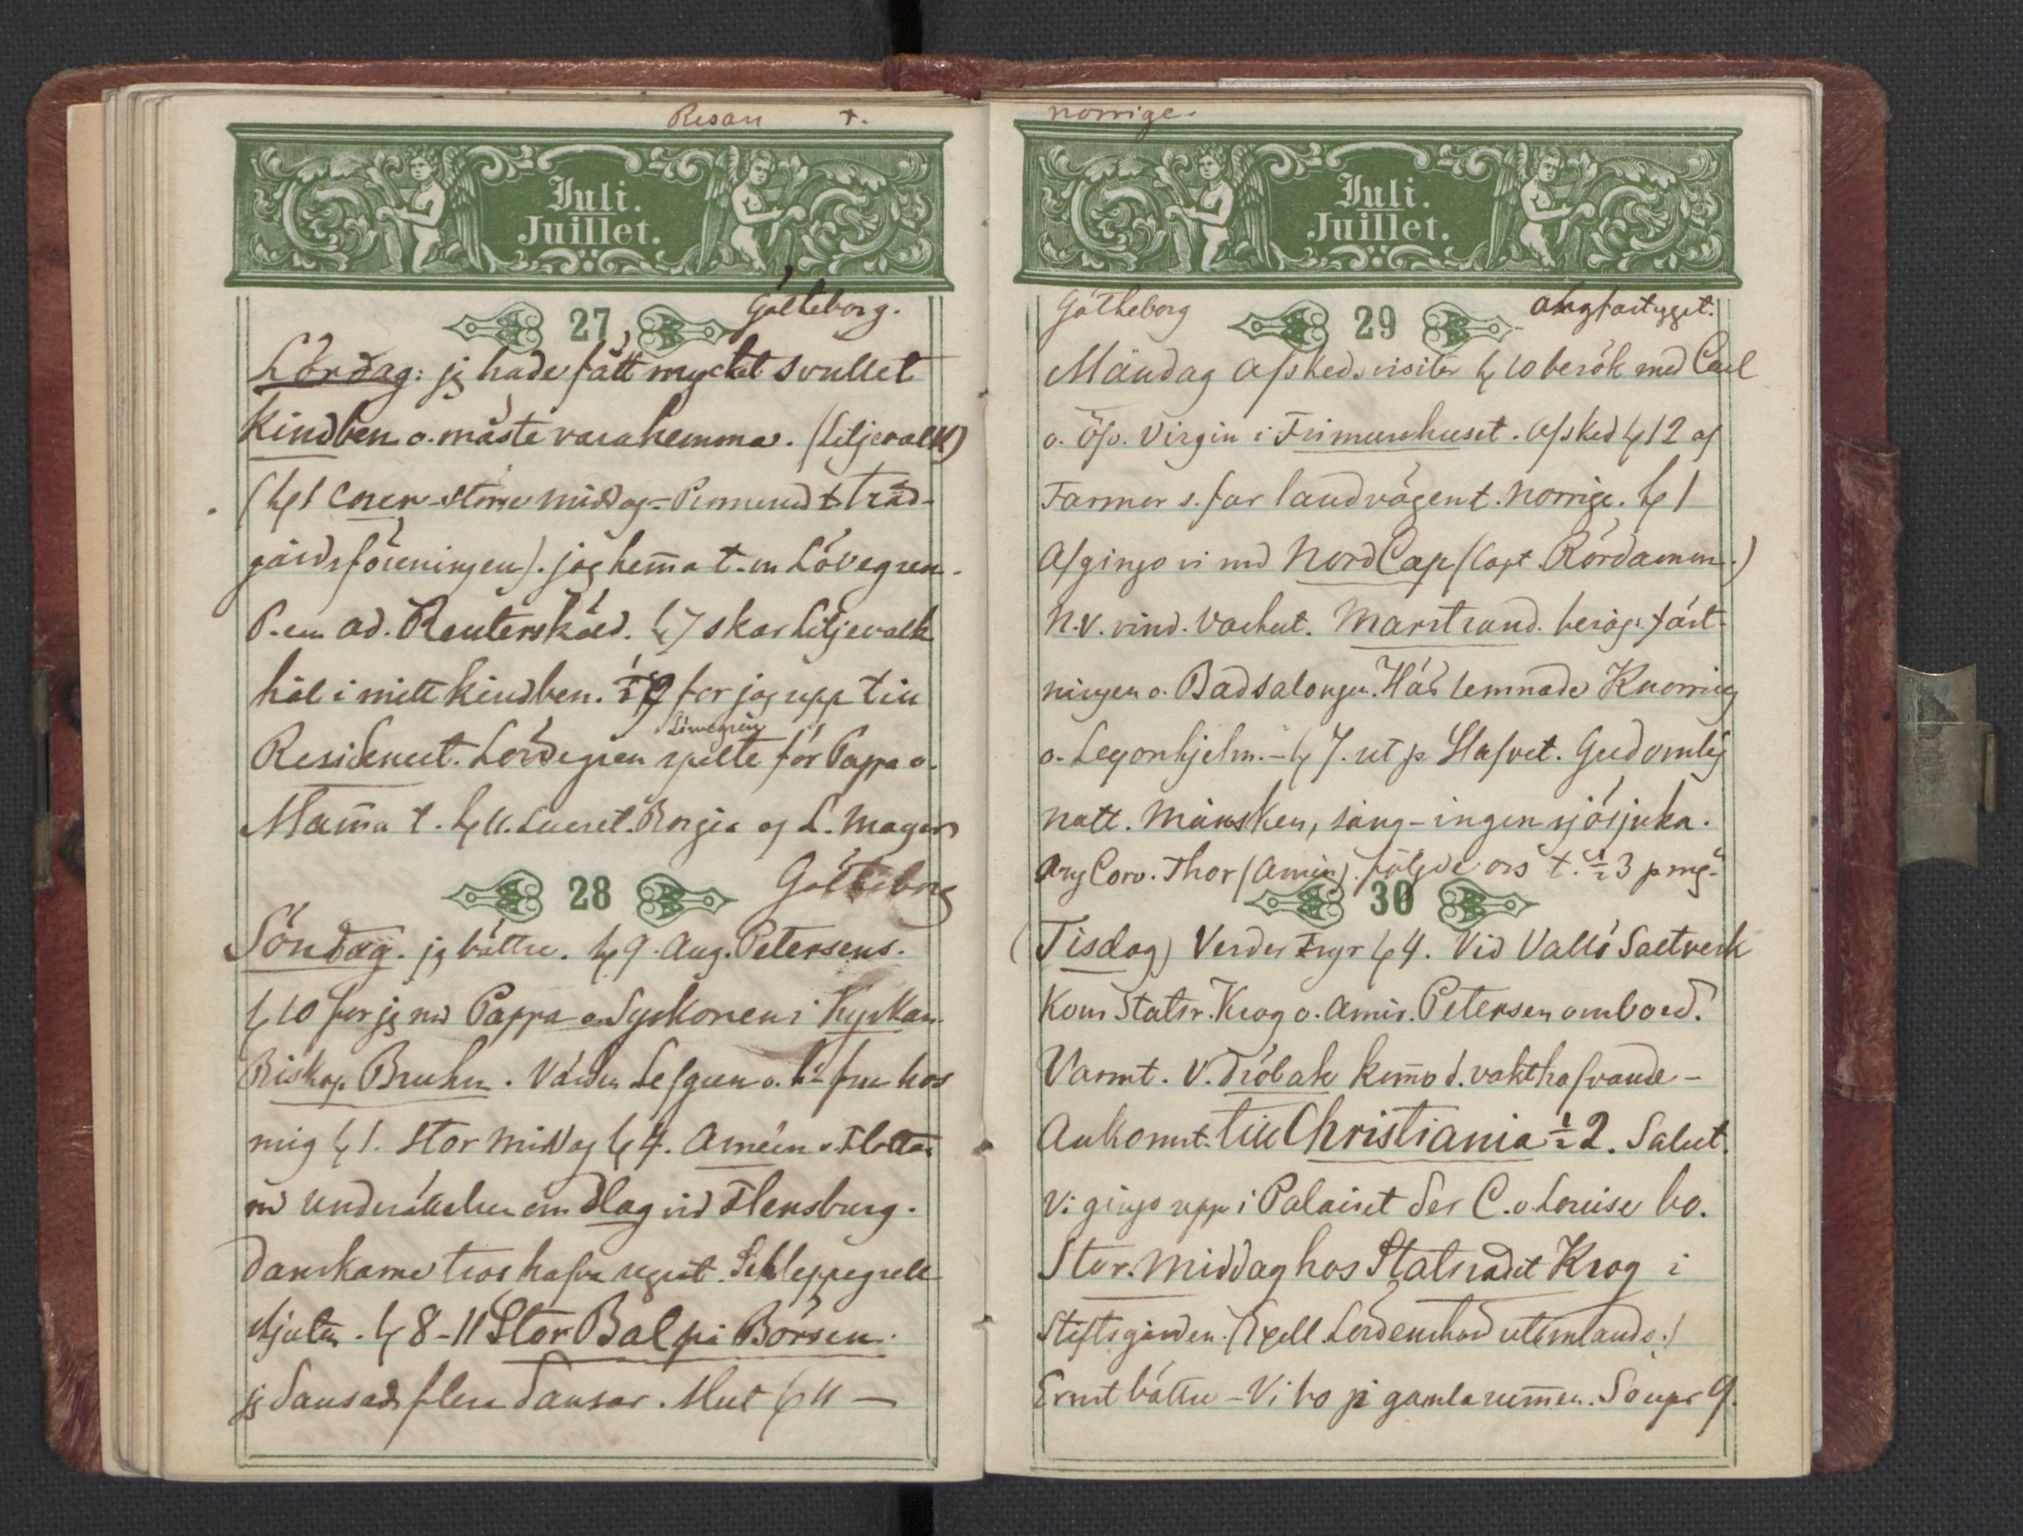 Resan t.
Juli.
Juillet.
27 Götteborg.
Lördag: jg hade fått mycket svullet
kindben o. måste vara hemma. (Liljevalk)
(kl 1 större middag - Promenad t. Träd-
gårdsföreningen). jag hem̄a t. m Lövegren.
P. em ad. Reutersköld. kl 7 skar Liljevalk
hål i mitt kindben. ½ 9 for jag upp till
Residencet. Lövegren spelte för Pappa o.
Lövegren
Mam̄a t. kl 11. Lucret. Borgia af L. Magers
28 Götheborg
Söndag. jg bättre. kl 9. Aug. Petersens.
kl 10 for jg md Pappa o. Syskonen i Kyrkan
Biskop Bruhn. Värden Lefgren o. hs fru hos
mig kl 1. Stor middag kl 4. Améen o. Flottan
md underrättelser om slag vid Flensburg.
Danskarne tros hafva segrat. Schleppegrell
skjuten. kl 8-11 Stor Bal på Börsen.
jg dansade flera dansar. Slut kl 11 —
norrige.
Juli.
Juillet.
Götheborg 29 ångfartyget.
Måndag Afskedsvisiter kl 10 besök med Carl
o. Öfv. Virgin i Frimurehuset. Afsked kl 12 af
Farmor s. far landvägen t. norrige. kl 1
Afgingo vi md NordCap (Capt. Rördamm.)
N.V. vind. Vackert. Marstrand. besågs fäst-
ningen o. Badsalongen. Här lemnade Knorring
o. Legonhjelm. - kl 7. ut p Hafvet. Gudomlig
natt. Månsken, sång - ingen sjösjuka.
Ång Corv. Thor (Améen). följde oss t. ½ 3 p mg.
30
(Tisdag) Verder Fyr kl 4. Vid Vallö Saltverk
kom Statsr. Krog o. Amir. Petersen ombord.
Varmt. V. Dröbak kom̄o d. vakthafvande -
Ankomst. till Christiania ½ 2. Salut.
Vi gingo upp i Palaiset der C. o. Louise bo.
Stor. middag hos Statsrådet Krog i
Stiftsgården. (Exell. Lövenskiold utomlands.)
Ernst bättre - Vi bo på gamla rum̄en. Souper 9.